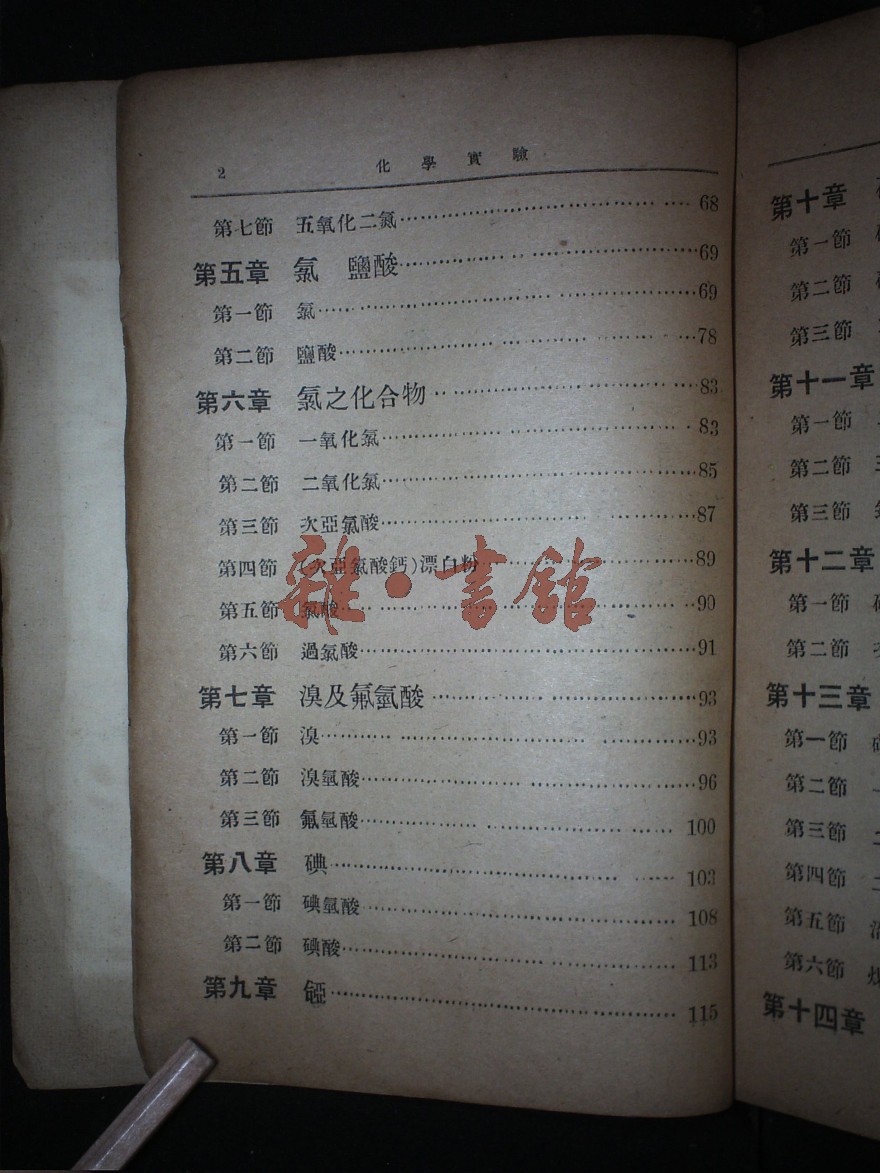 2 化學實驗
第七節 五氧化二氮 68
第五章 氯 鹽酸 69
第一節 氯 69
第二節 鹽酸 78
第六章 氯之化合物 83
第一節 一氧化氯 83
第二節 二氧化氯 85
第三節 次亞氯酸 87
第四節 (次亞氯酸鈣)漂白粉 89
第五節 氯酸 90
第六節 過氯酸 91
第七章 溴及氟氫酸 93
第一節 溴 93
第二節 溴氫酸 96
第三節 氟氫酸 100
第八章 碘 103
第一節 碘氫酸 108
第二節 碘酸 113
第九章 115
雜·書館
第十章
第一節
第二節
第三節
第十一章
第一節
第二節
第三節
第十二章
第一節
第二節
第十三章
第一節
第二節
第三節
第四節
第五節
第六節
第十四章